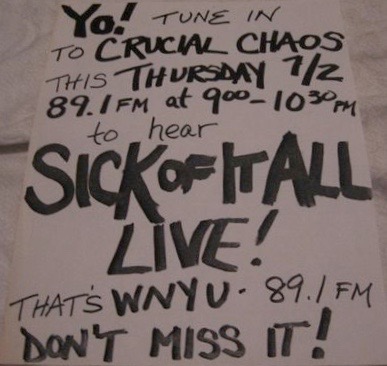 Yo! TUNE IN
TO CRUCIAL CHAOS
THIS THURSDAY 7/2
89.1 FM at 900-1030 PM
to hear
SICK OF IT ALL
LIVE!
THAT'S WNYU - 89.1 FM
DON'T MISS IT!